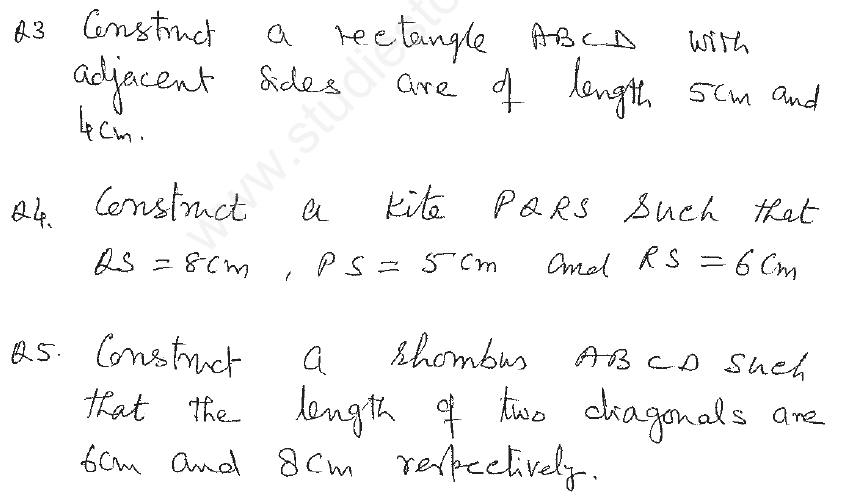 Q3 Construct a rectangle ABCD with
adjacent sides are of length 5cm and
4cm.
Q4. Construct a kite PQRS such that
QS = 8cm, PS = 5cm and RS = 6cm
Q5. Construct a rhombus ABCD such
that the length of two diagonals are
6cm and 8cm respectively.
www.studiesto